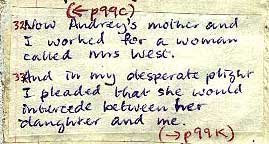 (←p99C)
32 Now Audrey's mother and
I worked for a woman
called Mrs West.
33 And in my desperate plight
I pleaded that she would
intercede between her
daughter and me.
(→p99K)